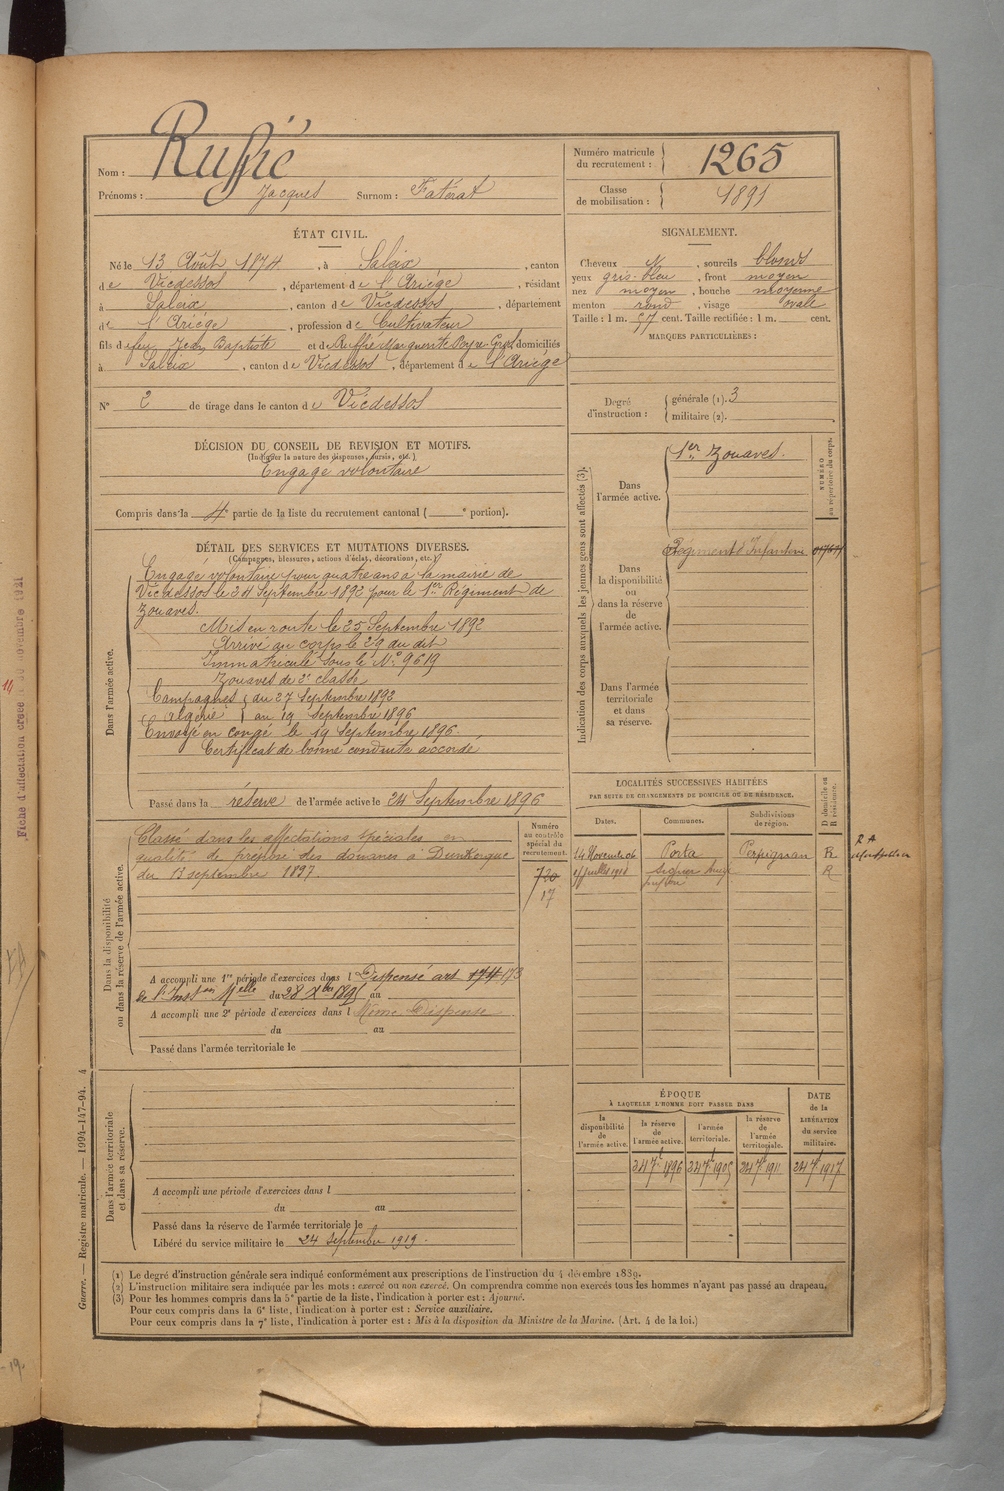 Nom : Ruffié
Prénoms : Jacques Surnom : Fatérat
Numéro matricule du recrutement : 1265
Classe de mobilisation : 1891
ÉTAT CIVIL.
Né le 13 Août 1874, à Saleix, canton
de Vicdessos, département de l'Ariége, résidant
à Saleix, canton de Vicdessos, département
de l'Ariége, profession de Cultivateur
fils de feu Jean Baptiste et de Ruffié Marguerite domiciliés
à Saleix, canton de Vicdessos, département de l'Ariége
N° 2 de tirage dans le canton de Vicdessos
SIGNALEMENT.
Cheveux N, sourcils blonds
yeux gris-bleu, front moyen
nez moyen, bouche moyenne
menton rond, visage ovale
Taille : 1 m. 57 cent. Taille rectifiée : 1 m. cent.
MARQUES PARTICULIÈRES :
Degré d'instruction : générale (1). 3
militaire (2).
DÉCISION DU CONSEIL DE REVISION ET MOTIFS.
(Indiquer la nature des dispenses, sursis, etc.)
Engagé volontaire
Compris dans la 4e partie de la liste du recrutement cantonal ( e portion).
DÉTAIL DES SERVICES ET MUTATIONS DIVERSES.
(Campagnes, blessures, actions d'éclat, décorations, etc.)
Dans l'armée active.
Engagé volontaire pour quatre ans à la mairie de
Vicdessos le 24 Septembre 1892 pour le 1er Régiment de
Zouaves.
Mis en route le 25 Septembre 1892
Arrivé au corps le 29 du dit
Immatriculé sous le N° 9619
Zouaves de 2e classe
Campagnes { du 27 Septembre 1892
Algérie } au 19 Septembre 1896
Envoyé en congé le 19 Septembre 1896
Certificat de bonne conduite accordé
Passé dans la réserve de l'armée active le 24 Septembre 1896
Indication des corps auxquels les jeunes gens sont affectés (3).
NUMÉRO au répertoire du corps.
Dans l'armée active.
1er Zouaves.
Dans la disponibilité ou dans la réserve de l'armée active.
Régiment d'Infanterie
Dans l'armée territoriale et dans sa réserve.
Dans la disponibilité ou dans la réserve de l'armée active.
Classé dans les affectations spéciales en
qualité de préposé des douanes à Dunkerque
du 13 septembre 1897
Numéro au contrôle spécial du recrutement.
720
17
A accompli une 1re période d'exercices dans l Dispensé art 174 173
de l'Inston Melle du 28 Xbre 1895 au
A accompli une 2e période d'exercices dans l Même Dispense
du au
Passé dans l'armée territoriale le
LOCALITÉS SUCCESSIVES HABITÉES
PAR SUITE DE CHANGEMENTS DE DOMICILE OU DE RÉSIDENCE.
Dates. Communes. Subdivisions de région. D domicile ou R résidence.
14 Novembre 06 Porta Perpignan R
juillet 1918 R
Dans l'armée territoriale et dans sa réserve.
A accompli une période d'exercices dans l
du au
Passé dans la réserve de l'armée territoriale le
Libéré du service militaire le 24 septembre 1919.
ÉPOQUE
À LAQUELLE L'HOMME DOIT PASSER DANS
la disponibilité de l'armée active.
la réserve de l'armée active.
l'armée territoriale.
la réserve de l'armée territoriale.
DATE de la LIBÉRATION du service militaire.
24 7bre 1896 24 7bre 1905 24 7bre 1911 24 7bre 1917
(1) Le degré d'instruction générale sera indiqué conformément aux prescriptions de l'instruction du 4 décembre 1889.
(2) L'instruction militaire sera indiquée par les mots : exercé ou non exercé. On comprendra comme non exercés tous les hommes n'ayant pas passé au drapeau.
(3) Pour les hommes compris dans la 5e partie de la liste, l'indication à porter est : Ajourné.
Pour ceux compris dans la 6e liste, l'indication à porter est : Service auxiliaire.
Pour ceux compris dans la 7e liste, l'indication à porter est : Mis à la disposition du Ministre de la Marine. (Art. 4 de la loi.)
Guerre. — Registre matricule. — 1994-147-94. 4
Fiche d'affectation créée le 30 novembre 1921